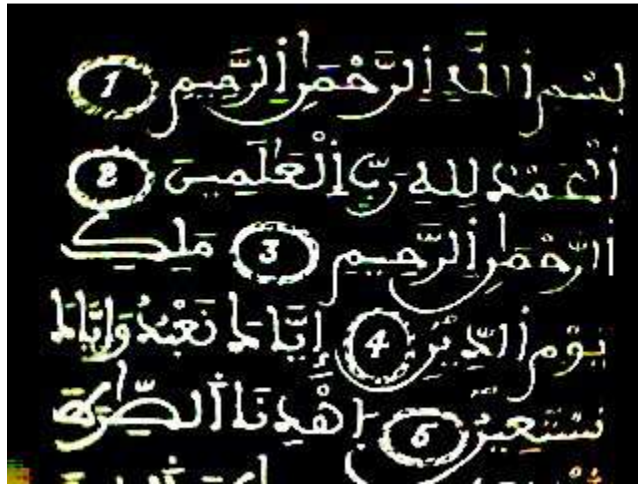 بِسْمِ اِللَّهِ اِلرَّحْمَٰنِ اِلرَّحِيمِ 1
اَلْحَمْدُ لِلهِ رَبِّ اِلْعَٰلَمِينَ 2
اَلرَّحْمَٰنِ اِلرَّحِيمِ 3 مَلِكِ
يَوْمِ اِلدِّينِ 4 إِيَّاكَ نَعْبُدُ وَإِيَّاكَ
نَسْتَعِينُ 5 اِهْدِنَا اَلصِّرَٰطَ